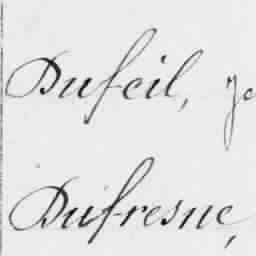 Dufeil,
Dufresne,